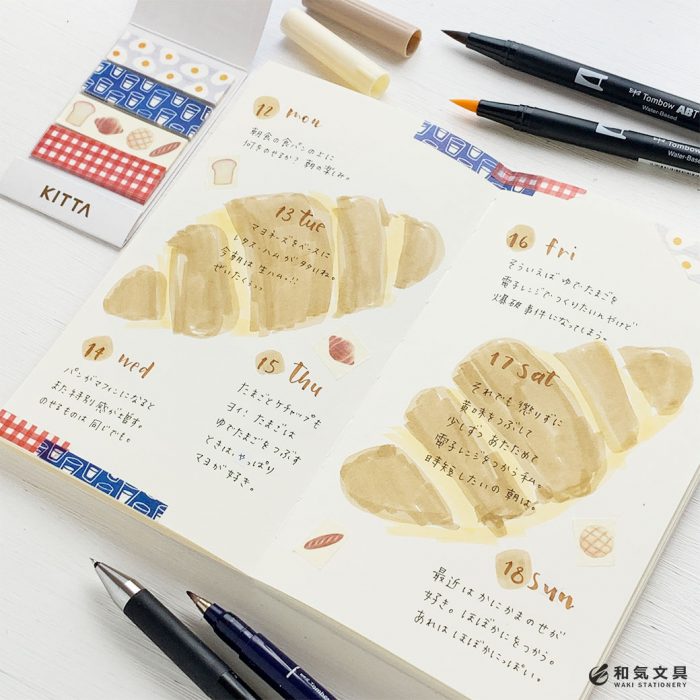 KITTA
Tombow ABT
Water-Based
Tombow
Water-Based
12 mon
朝食の食パンの上に
何をのせるか？朝の楽しみ。
13 tue
マヨネーズをベースに
レタス・ハムがタタいね。
今朝は生ハム。!!
ぜいたくっっ
14 wed
パンがマフィンになると
また特別感が増す。
のせるものは同じでも。
15 thu
たまごとケチャップも
ヨイ。たまごは
ゆでたまごをつぶす
ときは、やっぱり
マヨが好き。
16 fri
そういえばゆでたまごを
電子レンジでつくりたいんやけど
爆破事件になってしまう。
17 sat
それでも懲りずに
黄味をつぶして
少しずつあたためて
電子レンジをつかう私。
時短したいの朝は。
18 sun
最近はかにかまのせが
好き。ほぼかにをつかう。
あれはほぼかにっぽい。
和気文具
WAKI STATIONERY